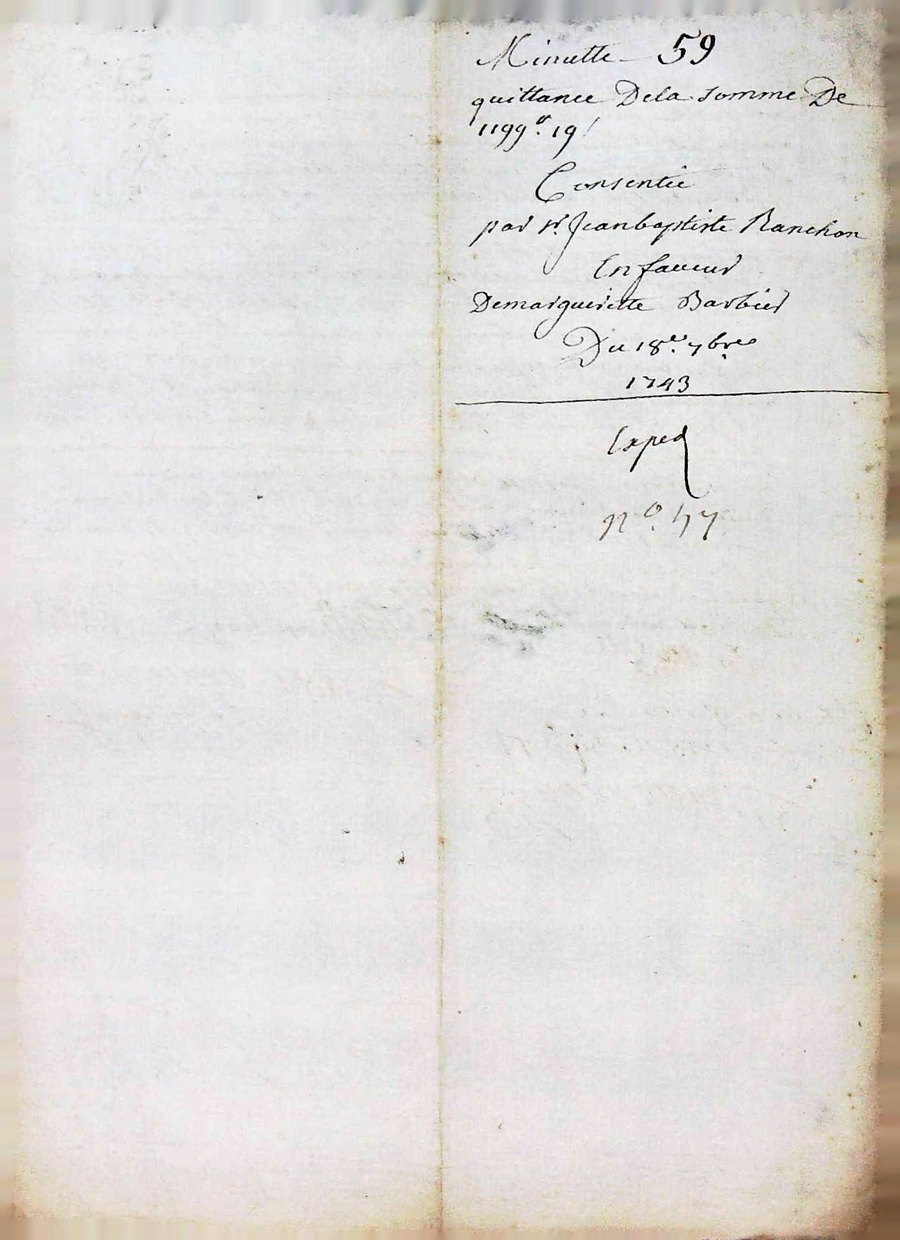 Minutte 59
quittance Dela somme De
1199ᵗᵗ. 19ˢ
Consentie
par sr. Jeanbaptiste Ranchon
En faveur
Demargueritte Barbier
Du 18e. 7bre
1743
Exped
n°. 57